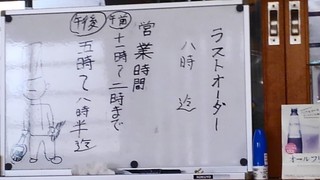 ラストオーダー
八時迄
営業時間
午前 十一時〜二時まで
午後 五時〜八時半迄